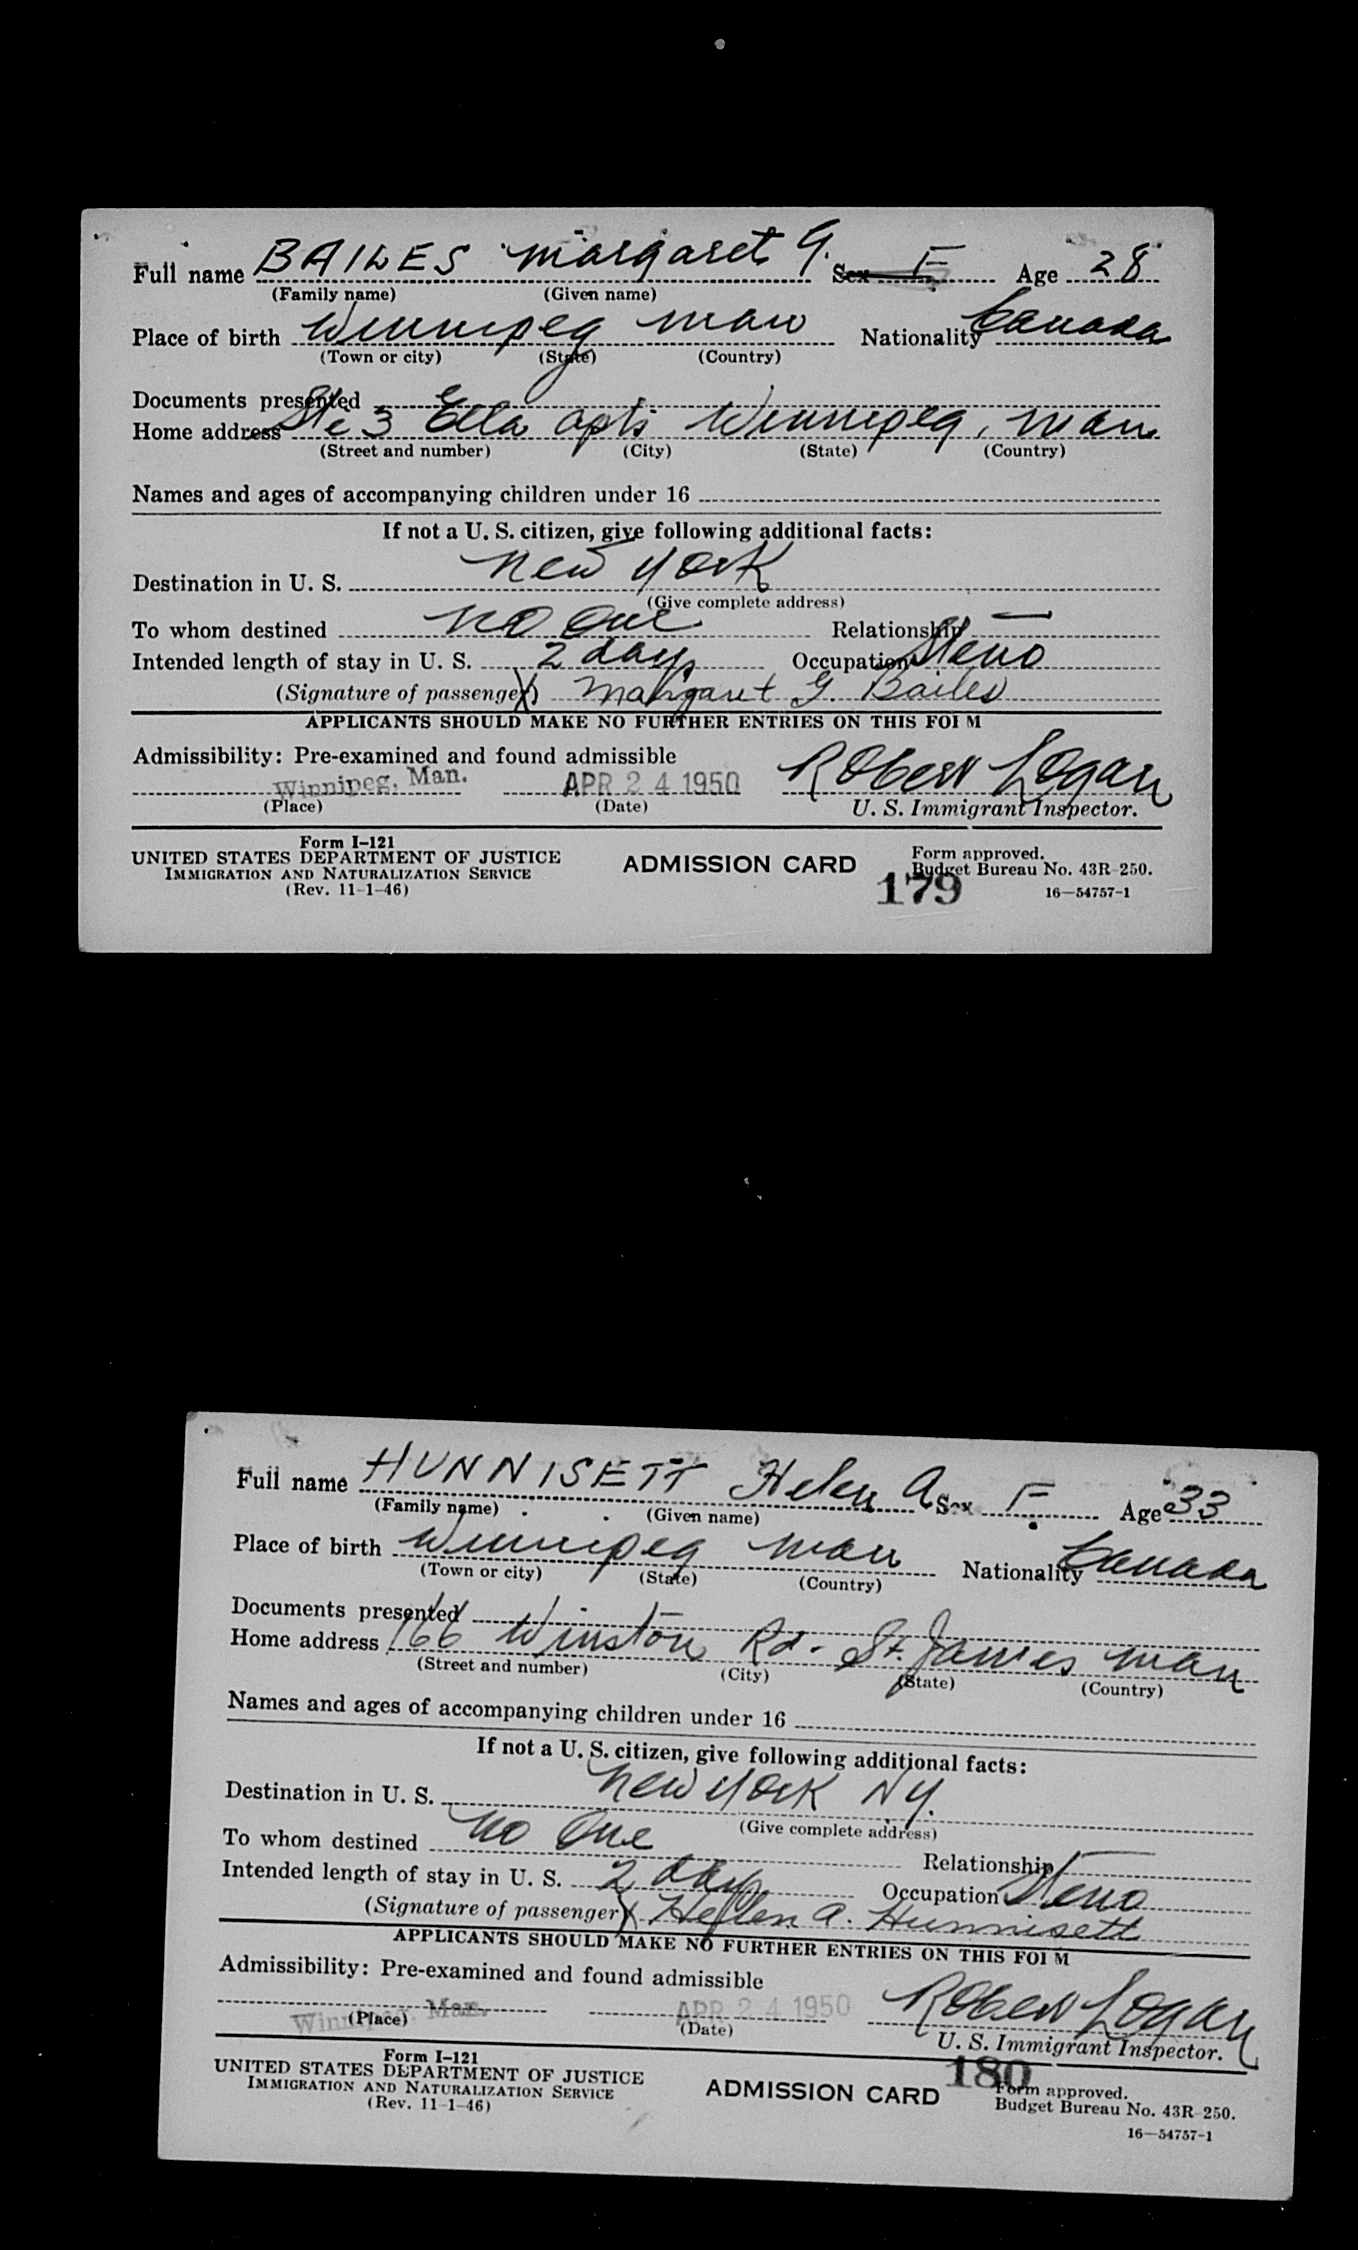 Full name BAILES Margaret G. Sex F Age 28
(Family name) (Given name)
Place of birth Winnipeg Man Nationality Canada
(Town or city) (State) (Country)
Documents presented
Home address Ste 3 Ella apts Winnipeg, Man
(Street and number) (City) (State) (Country)
Names and ages of accompanying children under 16
If not a U. S. citizen, give following additional facts:
Destination in U. S. New York
(Give complete address)
To whom destined No One Relationship —
Intended length of stay in U. S. 2 days Occupation Steno
(Signature of passenger) X Margaret G. Bailes
APPLICANTS SHOULD MAKE NO FURTHER ENTRIES ON THIS FORM
Admissibility: Pre-examined and found admissible
Winnipeg, Man. APR 24 1950 Robert Logan
(Place) (Date) U. S. Immigrant Inspector.
Form I-121
UNITED STATES DEPARTMENT OF JUSTICE ADMISSION CARD Form approved.
IMMIGRATION AND NATURALIZATION SERVICE Budget Bureau No. 43R-250.
(Rev. 11-1-46) 179 16—54757-1
Full name HUNNISETT Helen A Sex F Age 33
(Family name) (Given name)
Place of birth Winnipeg Man Nationality Canada
(Town or city) (State) (Country)
Documents presented
Home address 166 Winston Rd. St. James Man
(Street and number) (City) (State) (Country)
Names and ages of accompanying children under 16
If not a U. S. citizen, give following additional facts:
Destination in U. S. New York NY.
(Give complete address)
To whom destined No One Relationship —
Intended length of stay in U. S. 2 days Occupation Steno
(Signature of passenger) X Hellen A. Hunnisett
APPLICANTS SHOULD MAKE NO FURTHER ENTRIES ON THIS FORM
Admissibility: Pre-examined and found admissible
Winnipeg, Man. APR 24 1950 Robert Logan
(Place) (Date) U. S. Immigrant Inspector.
Form I-121 180
UNITED STATES DEPARTMENT OF JUSTICE ADMISSION CARD Form approved.
IMMIGRATION AND NATURALIZATION SERVICE Budget Bureau No. 43R-250.
(Rev. 11-1-46) 16—54757-1